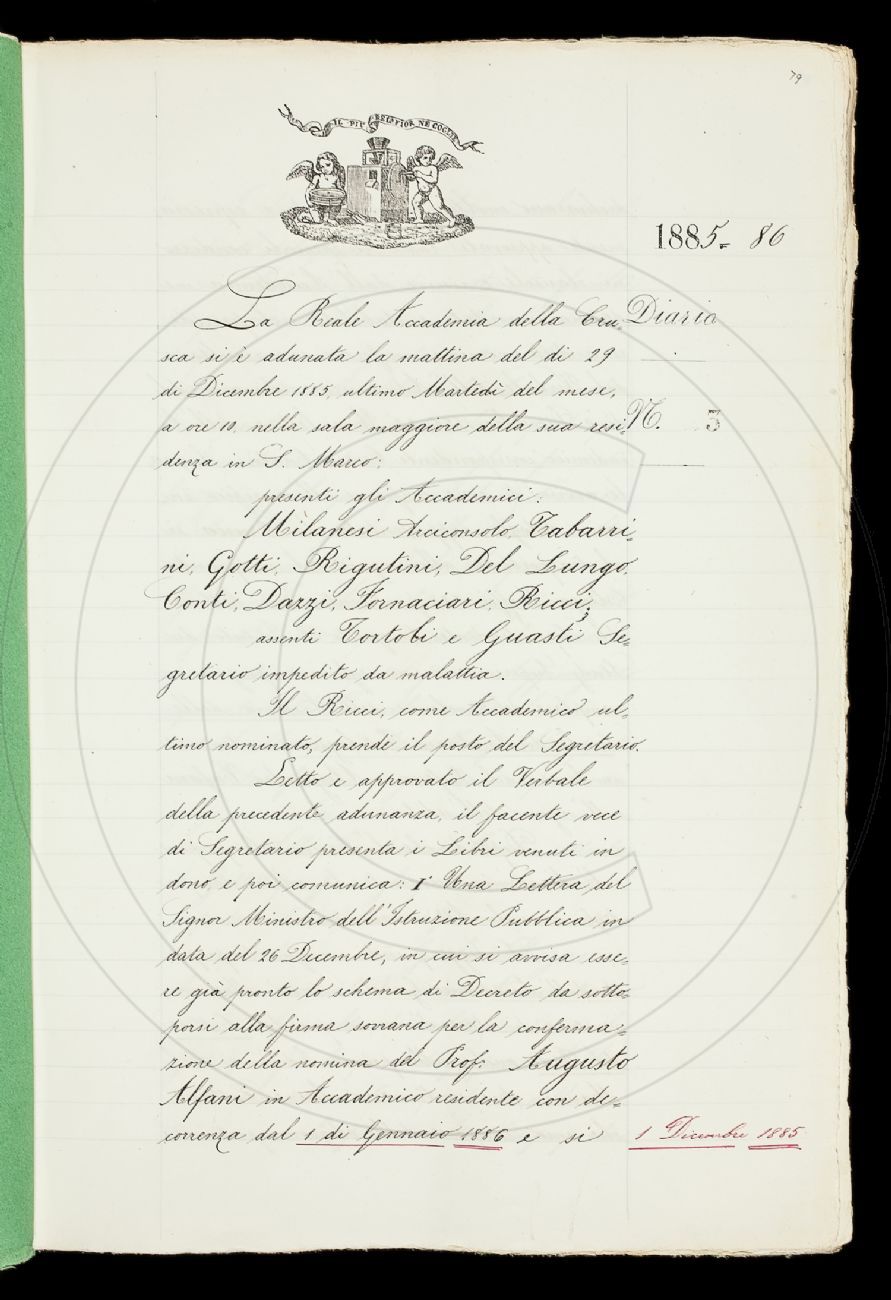 79
IL PIÙ BEL FIOR NE COGLIE
1885= 86
La Reale Accademia della Cru= Diario
sca si è adunata la mattina del dì 29
di Dicembre 1885, ultimo Martedì del mese,
a ore 10, nella sala maggiore della sua resi= N. 3
denza in S. Marco:
presenti gli Accademici:
Milanesi Arciconsolo, Tabarri=
ni, Gotti, Rigutini, Del Lungo,
Conti, Dazzi, Fornaciari, Ricci;
assenti Tortoli e Guasti Se=
gretario impedito da malattia.
Il Ricci, come Accademico ul=
timo nominato, prende il posto del Segretario.
Letto e approvato il Verbale
della precedente adunanza, il facente vece
di Segretario presenta i Libri venuti in
dono, e poi comunica: 1° Una Lettera del
Signor Ministro dell'Istruzione Pubblica in
data del 26 Decembre, in cui si avvisa esse=
re già pronto lo schema di Decreto da sotto=
porsi alla firma sovrana per la conferma=
zione della nomina del Prof. Augusto
Alfani in Accademico residente con de=
correnza dal 1 di Gennaio 1886 e si 1 Dicembre 1885